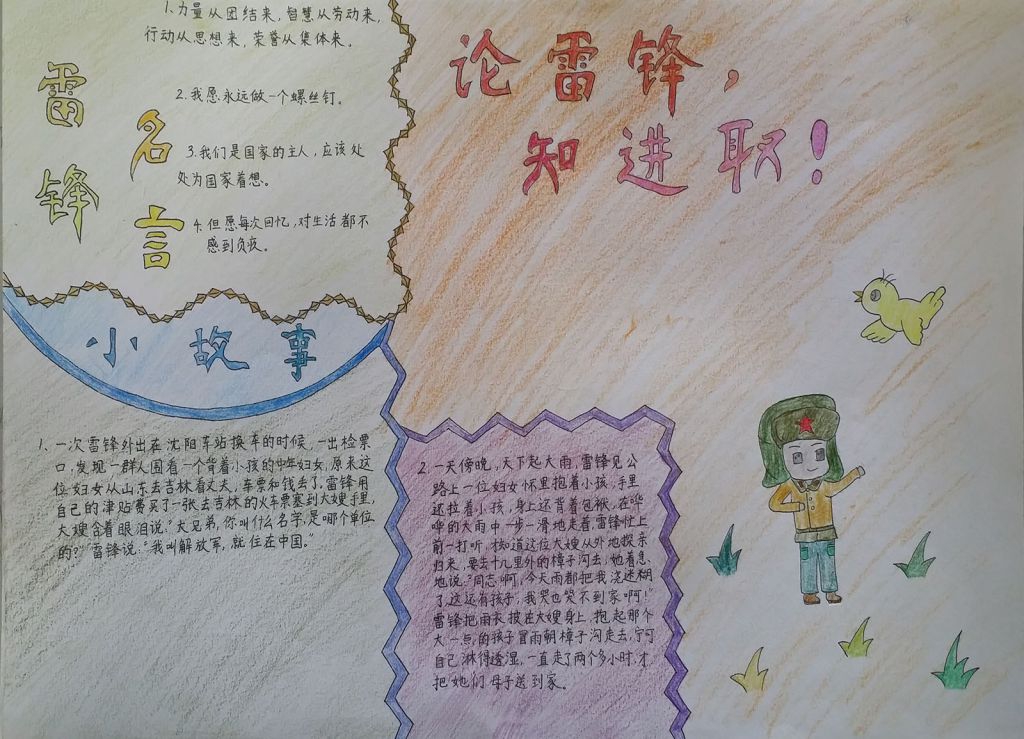 论雷锋，
知进取！
雷锋
名言
1.力量从团结来，智慧从劳动来，
行动从思想来，荣誉从集体来。
2.我愿永远做一个螺丝钉。
3.我们是国家的主人，应该处
处为国家着想。
4.但愿每次回忆，对生活都不
感到负疚。
小故事
1、一次雷锋外出在沈阳车站换车的时候，一出检票
口，发现一群人围看一个背着小孩的中年妇女，原来这
位妇女从山东去吉林看丈夫，车票和钱丢了，雷锋用
自己的津贴费买了一张去吉林的火车票塞到大嫂手里，
大嫂含着眼泪说："大兄弟，你叫什么名字，是哪个单位
的？"雷锋说："我叫解放军，就住在中国。"
2.一天傍晚，天下起大雨，雷锋见公
路上一位妇女怀里抱着小孩，手里
还拉着小孩，身上还背着包袱，在哗
哗的大雨中一步一滑地走着，雷锋忙上
前一打听，才知道这位大嫂从外地探亲
归来，要去十几里外的樟子沟去，她着急
地说："同志啊，今天雨都把我浇迷糊
了，这还有孩子，我哭也哭不到家啊！"
雷锋把雨衣披在大嫂身上，抱起那个
大一点的孩子冒雨朝樟子沟走去，宁可
自己淋得透湿，一直走了两个多小时，才
把她们母子送到家。